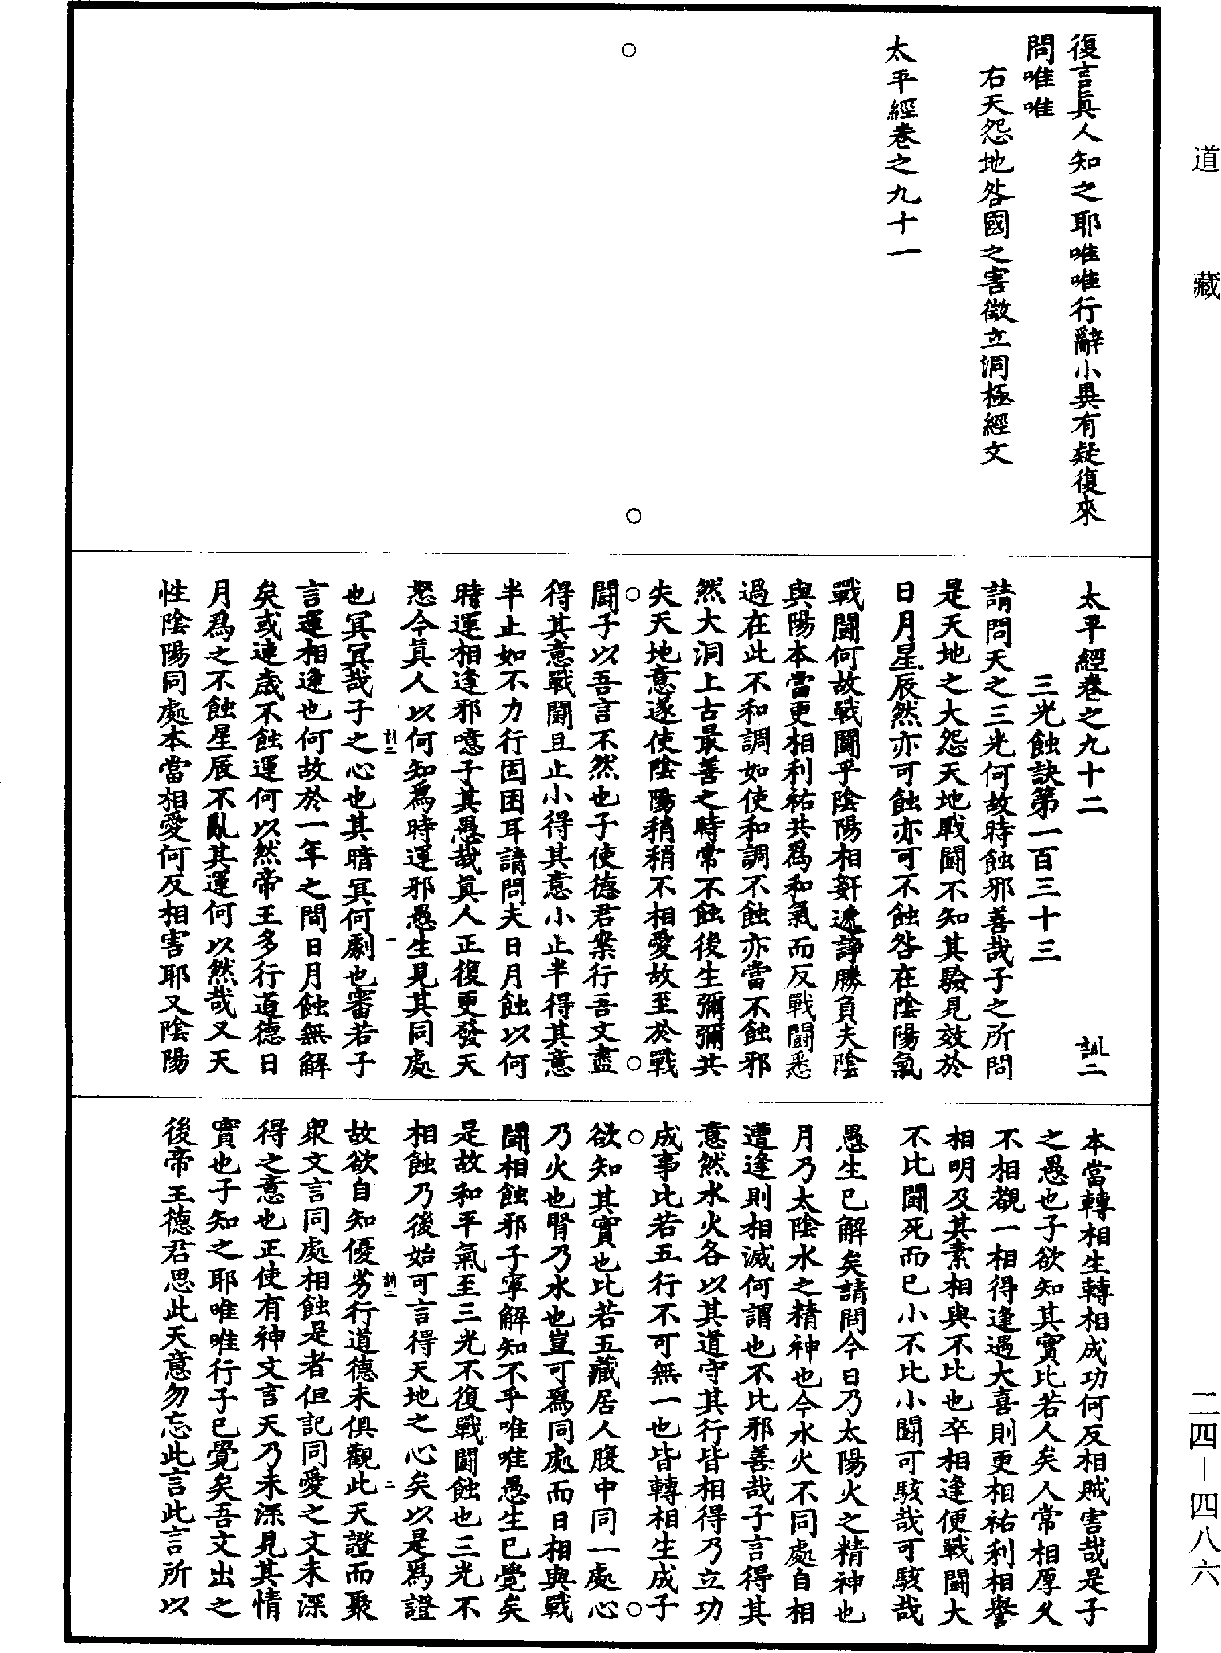 道藏
復言真人知之耶唯唯行辭小異有疑復來
問唯唯
右天怨地咎國之害徵立洞極經文
太平經卷之九十一
太平經卷之九十二 訓二
三光蝕訣第一百三十三
請問天之三光何故時蝕邪善哉子之所問
是天地之大怨天地戰鬪不知其驗見效於
日月星辰然亦可蝕亦可不蝕咎在陰陽氣
戰鬪何故戰鬪乎陰陽相奸遞諍勝負夫陰
與陽本當更相利祐共為和氣而反戰鬪悉
過在此不和調如使和調不蝕亦當不蝕邪
然大洞上古最善之時常不蝕後生彌彌共
失天地意遂使陰陽稍稍不相愛故至於戰
鬪子以吾言不然也子使德君案行吾文盡
得其意戰鬪且止小得其意小止半得其意
半止如不力行固固耳請問夫日月蝕以何
時運相逢邪噫子其愚哉真人正復更發天
怒今真人以何知為時運邪愚生見其同處
訓二 一
也冥冥哉子之心也其暗冥何劇也審若子
言運相逢也何故於一年之間日月蝕無解
矣或連歲不蝕運何以然帝王多行道德日
月為之不蝕星辰不亂其運何以然哉又天
性陰陽同處本當相愛何反相害耶又陰陽
本當轉相生轉相成功何反相賊害哉是子
之愚也子欲知其實比若人矣人常相厚久
不相覩一相得逢遇大喜則更相祐利相譽
相明及其素相與不比也卒相逢便戰鬪大
不比鬪死而已小不比小鬪可駭哉可駭哉
愚生已解矣請問今日乃太陽火之精神也
月乃太陰水之精神也今水火不同處自相
遭逢則相滅何謂也不比邪善哉子言得其
意然水火各以其道守其行皆相得乃立功
成事比若五行不可無一也皆轉相生成子
欲知其實也比若五藏居人腹中同一處心
乃火也腎乃水也豈可為同處而日相與戰
鬪相蝕邪子寧解知不乎唯唯愚生已覺矣
是故和平氣至三光不復戰鬪蝕也三光不
相蝕乃後始可言得天地之心矣以是為證
訓二 二
故欲自知優劣行道德未俱觀此天證而聚
眾文言同處相蝕是者但記同愛之文未深
得之意也正使有神文言天乃未深見其情
實也子知之耶唯唯行子已覺矣吾文出之
後帝王德君思此天意勿忘此言此言所以
二四—四八六